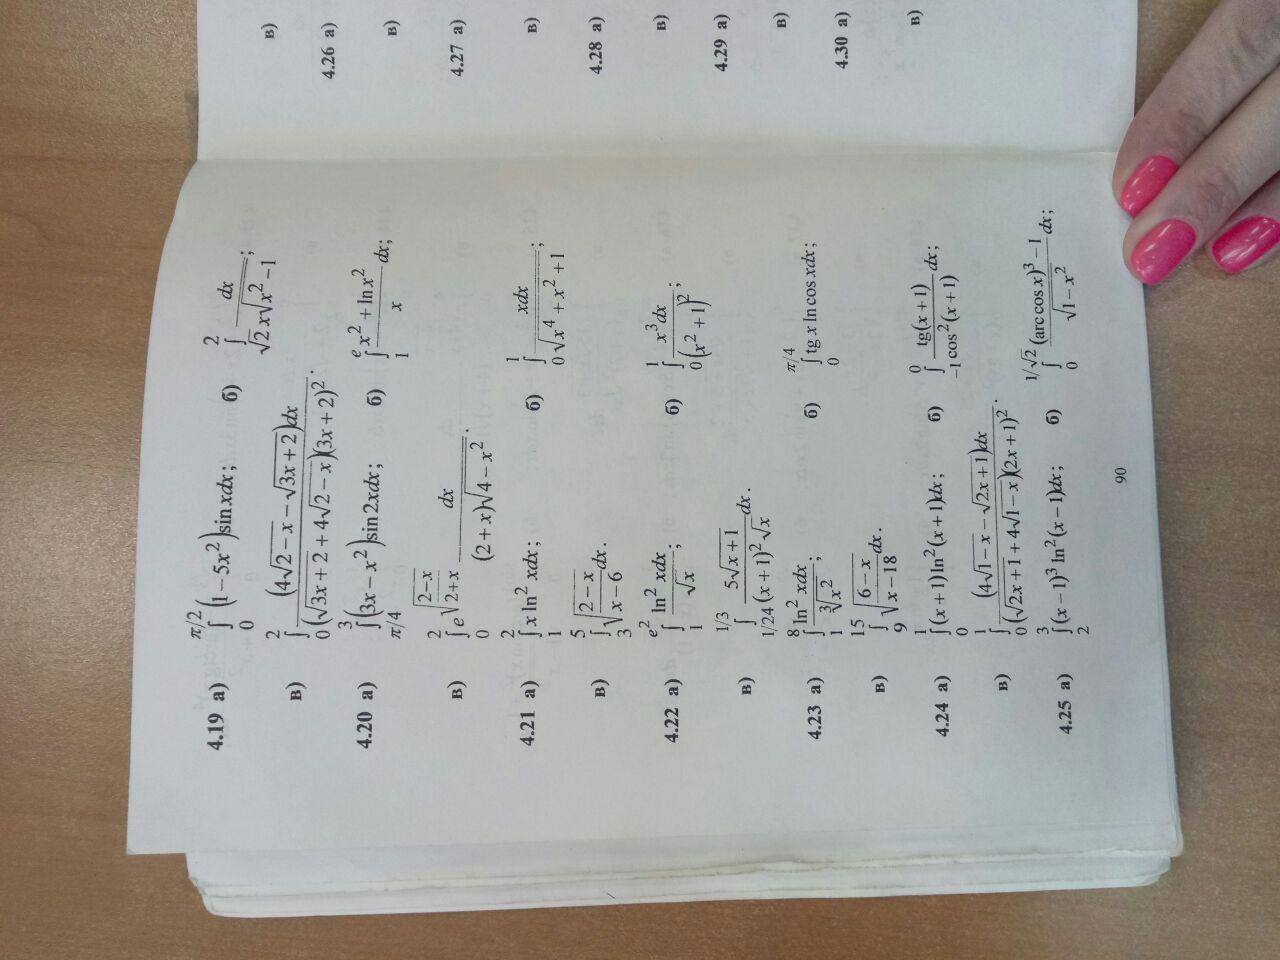 4.19 а) ∫_0^{π/2} (1 − 5x²) sin xdx; б) ∫_{√2}^{2} dx / (x√(x² − 1));
в) ∫_0^2 (4√(2 − x) − √(3x + 2))dx / ((√(3x + 2) + 4√(2 − x))(3x + 2)²).
4.20 а) ∫_{π/4}^{3} (3x − x²) sin 2xdx; б) ∫_1^e (x² + ln x²)/x dx;
в) ∫_0^2 e^{√((2−x)/(2+x))} dx / ((2 + x)√(4 − x²)).
4.21 а) ∫_1^2 x ln² xdx; б) ∫_0^1 xdx / √(x⁴ + x² + 1);
в) ∫_3^5 √((2 − x)/(x − 6)) dx.
4.22 а) ∫_1^{e²} ln² xdx / √x; б) ∫_0^1 x³dx / (x² + 1)²;
в) ∫_{1/24}^{1/3} 5√(x + 1) / ((x + 1)²√x) dx.
4.23 а) ∫_1^8 ln² xdx / ∛(x²); б) ∫_0^{π/4} tg x ln cos xdx;
в) ∫_9^{15} √((6 − x)/(x − 18)) dx.
4.24 а) ∫_0^1 (x + 1) ln² (x + 1)dx; б) ∫_{−1}^0 tg(x + 1) / cos² (x + 1) dx;
в) ∫_0^1 (4√(1 − x) − √(2x + 1))dx / ((√(2x + 1) + 4√(1 − x))(2x + 1)²).
4.25 а) ∫_2^3 (x − 1)³ ln² (x − 1)dx; б) ∫_0^{1/√2} ((arccos x)³ − 1) / √(1 − x²) dx;
90
в)
4.26 а)
в)
4.27 а)
в)
4.28 а)
в)
4.29 а)
в)
4.30 а)
в)